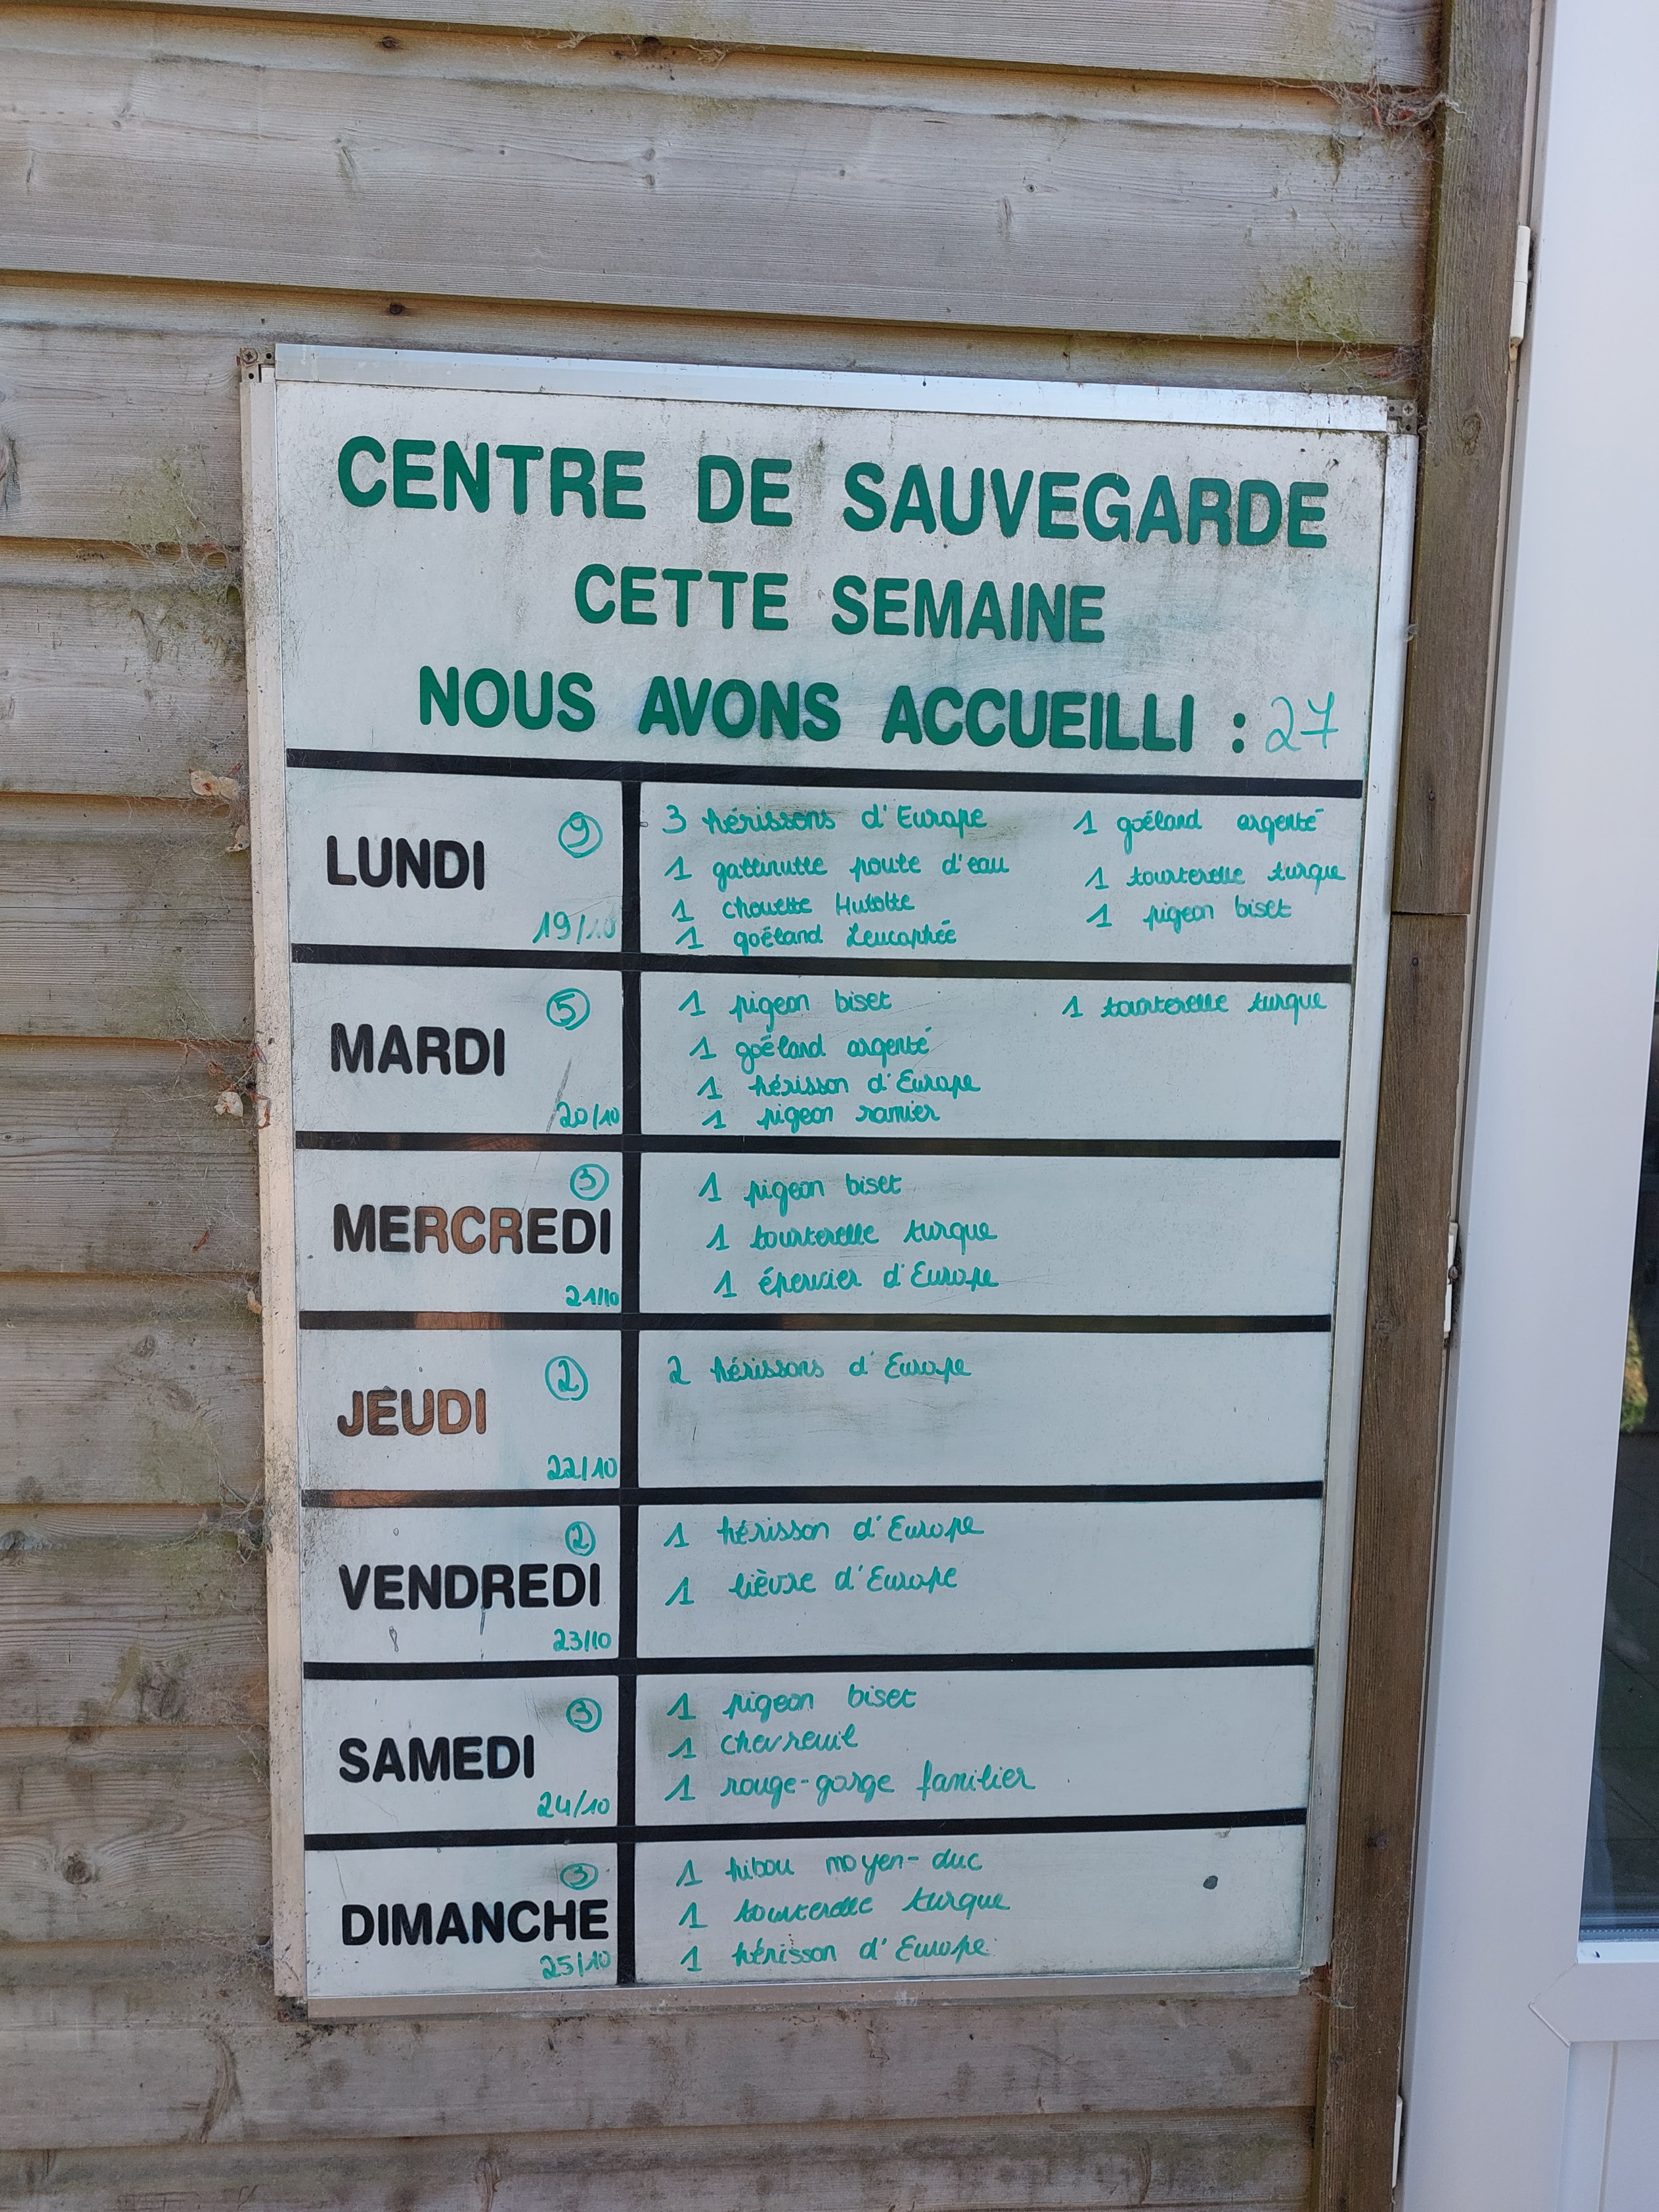 CENTRE DE SAUVEGARDE
CETTE SEMAINE
NOUS AVONS ACCUEILLI : 27
LUNDI
9
19/10
3 hérissons d'Europe
1 gallinulle poule d'eau
1 chouette Hulotte
1 goëland Leucophée
1 goëland argenté
1 tourterelle turque
1 pigeon biset
MARDI
5
20/10
1 pigeon biset
1 goëland argenté
1 hérisson d'Europe
1 pigeon ramier
1 tourterelle turque
MERCREDI
3
21/10
1 pigeon biset
1 tourterelle turque
1 épervier d'Europe
JEUDI
2
22/10
2 hérissons d'Europe
VENDREDI
2
23/10
1 hérisson d'Europe
1 lièvre d'Europe
SAMEDI
3
24/10
1 pigeon biset
1 chevreuil
1 rouge-gorge familier
DIMANCHE
3
25/10
1 hibou moyen-duc
1 tourterelle turque
1 hérisson d'Europe